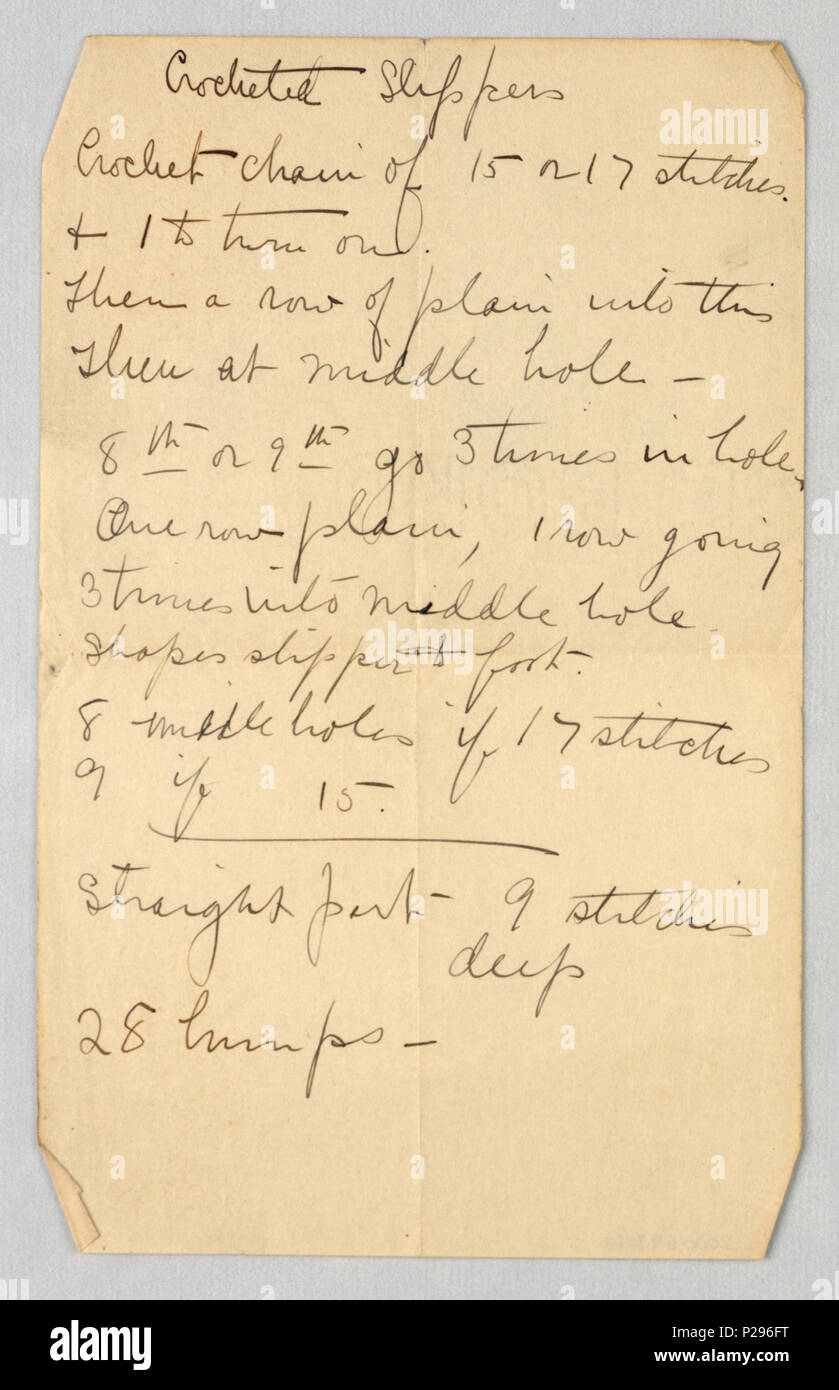 Crocheted Slippers
Crochet chain of 15 or 17 stitches.
+ 1 to turn on.
Then a row of plain into this
Then at middle hole —
8th or 9th go 3 times in hole.
One row plain, 1 row going
3 times into middle hole.
Shapes slipper to foot.
8 middle holes if 17 stitches
9 if 15.
Straight part 9 stitches
deep
28 bumps —
alamy
Image ID: P296FT
www.alamy.com